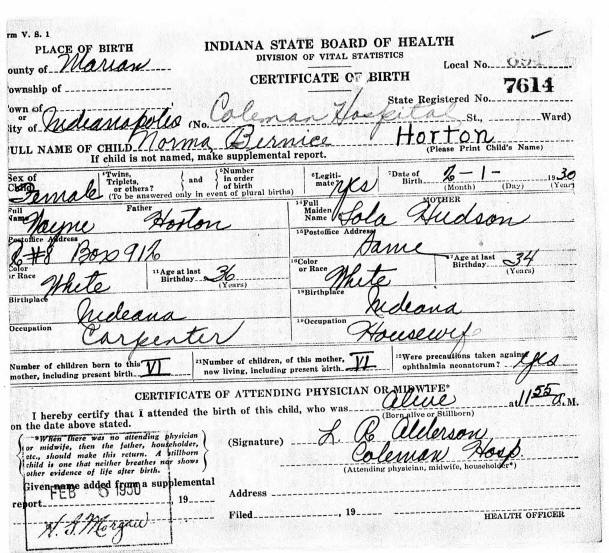 rm V. S. 1
PLACE OF BIRTH
INDIANA STATE BOARD OF HEALTH
DIVISION OF VITAL STATISTICS
ounty of Marion
Local No.
CERTIFICATE OF BIRTH
7614
ownship of
State Registered No.
own of
or
ity of Indianapolis (No. Coleman Hospital St., Ward)
ULL NAME OF CHILD Norma Bernice Horton
If child is not named, make supplemental report. (Please Print Child's Name)
Sex of Child Female
Twins, Triplets, or others? { and } Number in order of birth
(To be answered only in event of plural births)
Legiti-mate? yes
Date of Birth 2-1- 1930
(Month) (Day) (Year)
Father
Full Name Wayne Horton
MOTHER
Full Maiden Name Lola Hudson
Postoffice Address
R#8 Box 912
Postoffice Address
Same
Color or Race White
Age at last Birthday 36 (Years)
Color or Race White
Age at last Birthday 34 (Years)
Birthplace
Indeana
Birthplace
Indeana
Occupation
Carpenter
Occupation
Housewife
Number of children born to this mother, including present birth VI
Number of children, of this mother, now living, including present birth VI
Were precautions taken against ophthalmia neonatorum? yes
CERTIFICATE OF ATTENDING PHYSICIAN OR MIDWIFE*
I hereby certify that I attended the birth of this child, who was Alive at 11 55 M.
(Born alive or Stillborn)
on the date above stated.
*When there was no attending physician
or midwife, then the father, householder,
etc., should make this return. A stillborn
child is one that neither breathes nor shows
other evidence of life after birth.
(Signature) L. R. Alderson
Coleman Hosp.
(Attending physician, midwife, householder*)
Given name added from a supplemental
report 19
FEB 5 1930
H. S. Morgan
Address
Filed , 19
HEALTH OFFICER